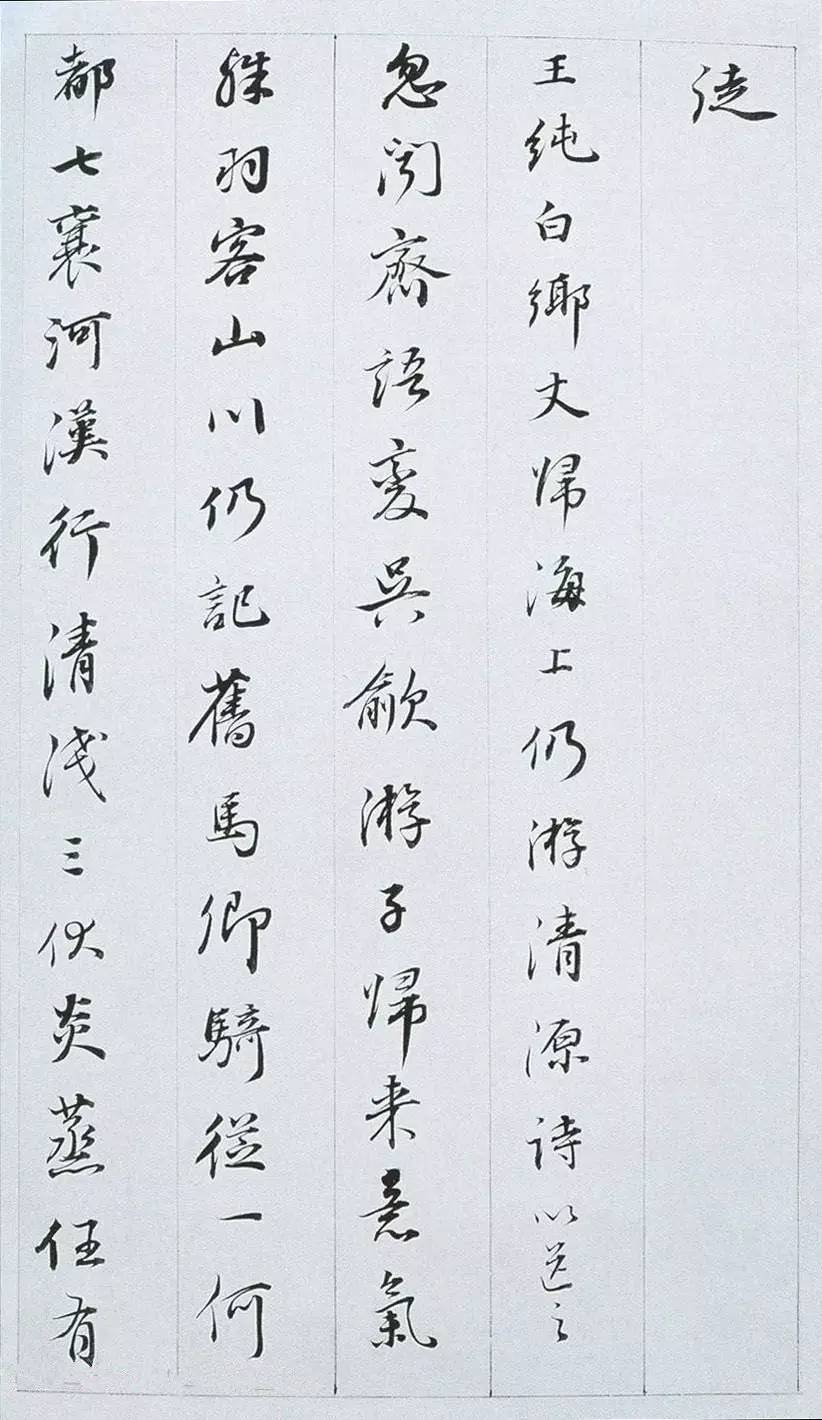 徒
王纯白乡丈歸海上仍游清源詩以送之
忽闻齋語变吴歈游子歸来意氣
殊羽客山川仍記舊馬卿騎從一何
都七襄河漢行清浅三伏炎蒸任有